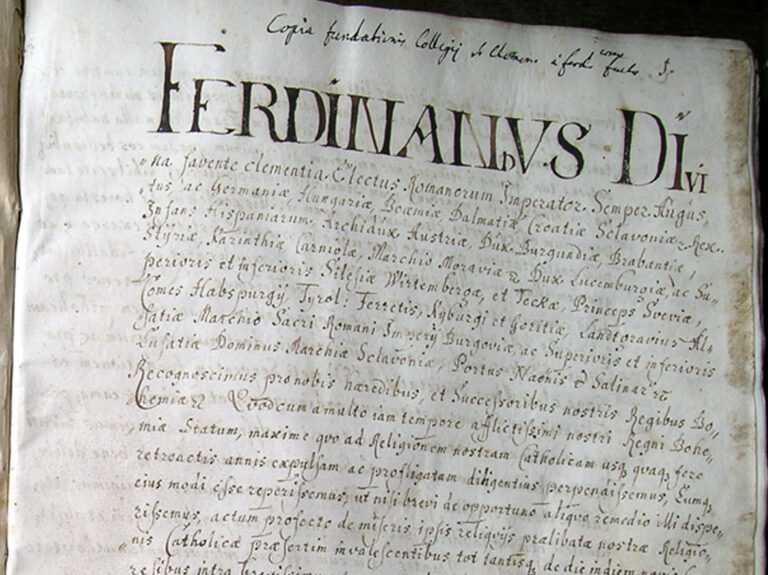 Copia fundationis Collegij S. Clemen. à Ferdi
FERDINANDVS DIVI
na favente clementia Electus Romanorum Imperator Semper Augus,,
tus, ac Germaniæ, Hungariæ, Boemiæ Dalmatiæ, Croatiæ Sclavoniæ Rex.
Infans Hispaniarum, Archidux Austriæ, Dux Burgundiæ, Brabantiæ,
Styriæ, Karinthiæ Carniolæ, Marchio Moraviæ Dux Lucemburgiæ, ac Su,,
perioris et inferioris Silesiæ Wirtembergæ, et Teckæ, Princeps Sveviæ,
Comes Habspurgij, Tyrol: Ferretis, Kyburgi et Goritiæ, Landtgravius Al,,
satiæ Marchio Sacri Romani Imperij Burgoviæ, ac Superioris et inferioris
Lusatiæ Dominus Marchiæ Sclavoniæ, Portus Naonis & Salinar
Recognoscimus pro nobis hæredibus, et Successoribus nostris Regibus Bo,,
hemiæ Quod cum a multo iam tempore afflictissimi nostri Regni Bohe,,
miæ Statum, maxime quo ad Religionem nostram Catholicam usq quaq fere
retroactis annis expulsam ac profligatam diligentius perpendissemus, Eumq
eius modi esse reperissemus, ut nisi brevi de opportuno aliquo remedio illi dispe,,
rissemus, actum profecto de miseris ipsis reliquijs prælibatæ nostræ Religio,,
nis Catholicæ præsertim invalescentibus tot tantisq de die in diem
resibus intra